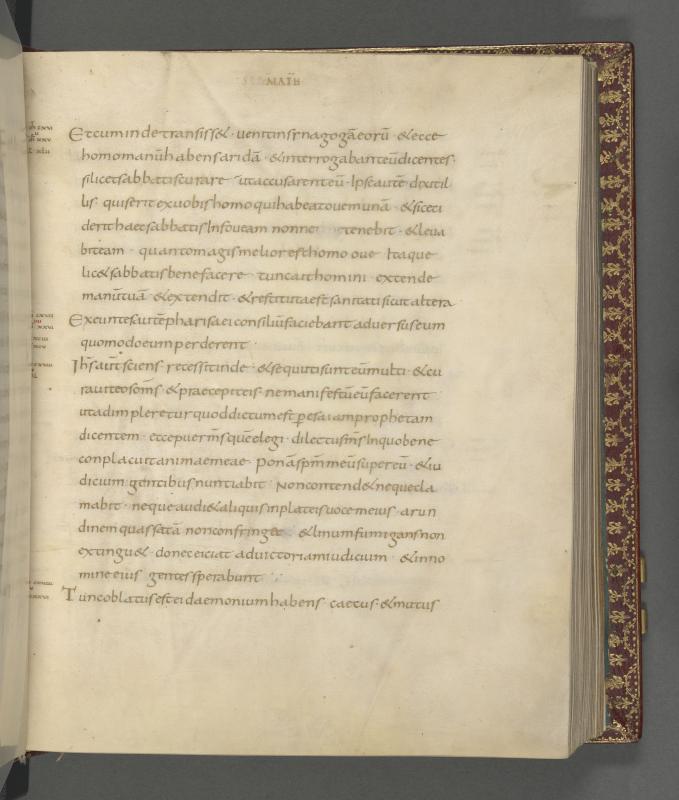 MATH
Et cum inde transisset · venit in synagogā eorū · & ecce
homo manū habens aridā · & interrogabant eū dicentes ·
si licet sabbatis curare · ut accusarent eū · Ipse autē dixit il
lis · quis erit ex vobis homo qui habeat ovem unā · & si ceci
derit haec sabbatis in foveam nonne tenebit · & leva
bit eam · quanto magis melior est homo ove · Itaque
licet sabbatis bene facere · tunc ait homini · extende
manū tuā · & extendit · & restituta est sanitati sicut altera
Exeuntes autē pharisaei consiliū faciebant adversus eum
quomodo eum perderent ·
Ihs aut̄ sciens · recessit inde · & secuti sunt eū multi · & cu
ravit eos om̄s · & praecepit eis · ne manifestū eū facerent
ut adimpleretur quod dictum est p esaiam prophetam
dicentem · ecce puer m̄s quē elegi · dilectus m̄s in quo bene
conplacuit animae meae · ponā sp̄m meū super eū · & iu
dicium gentibus nuntiabit · Non contendet neque cla
mabit · neque audiet aliquis in plateis vocem eius · arun
dinem quassatā non confringet · & linum fumigans non
extinguet · donec eiciat ad victoriam iudicium · & in no
mine eius gentes sperabunt ·
Tunc oblatus est ei daemonium habens · caecus · & mutus